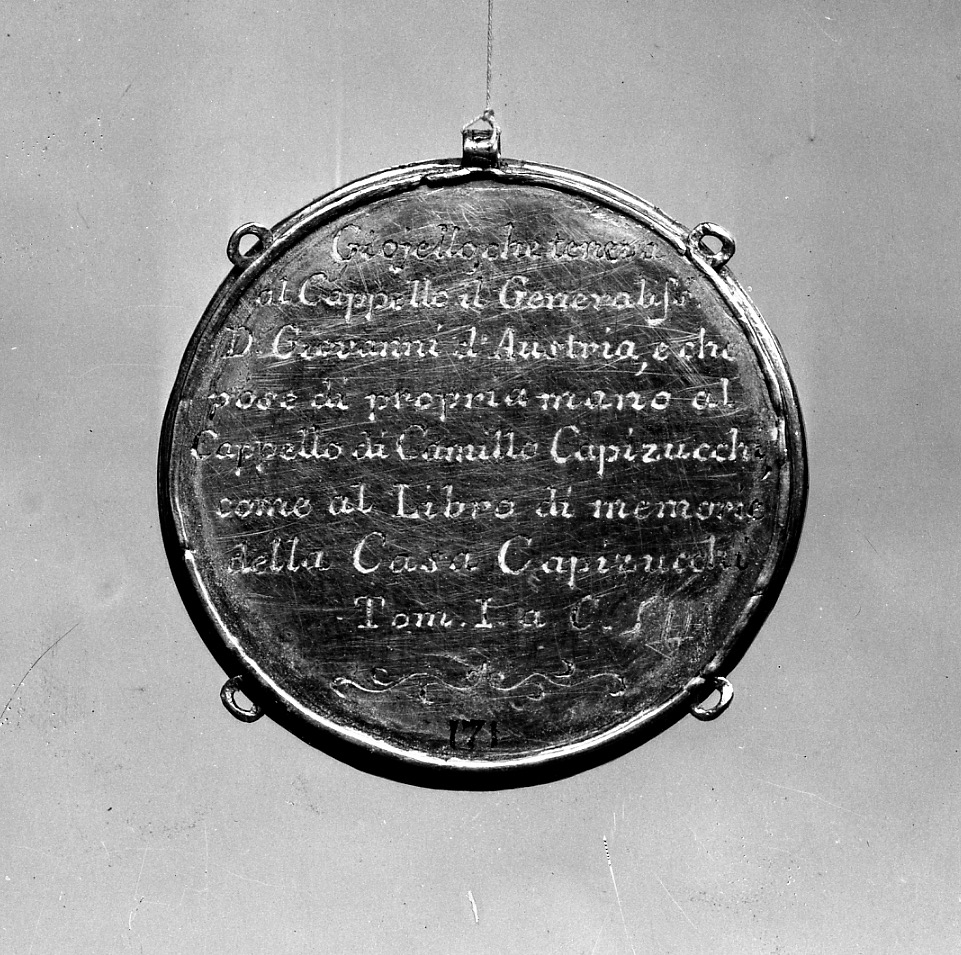 Giojello, che teneva
al Cappello il
D. Giovanni d'Austria, e che
pose di propria mano al
Cappello di Camillo Capizucchi,
come al Libro di memorie
della Casa Capizucchi
Tom. I. a C.
171